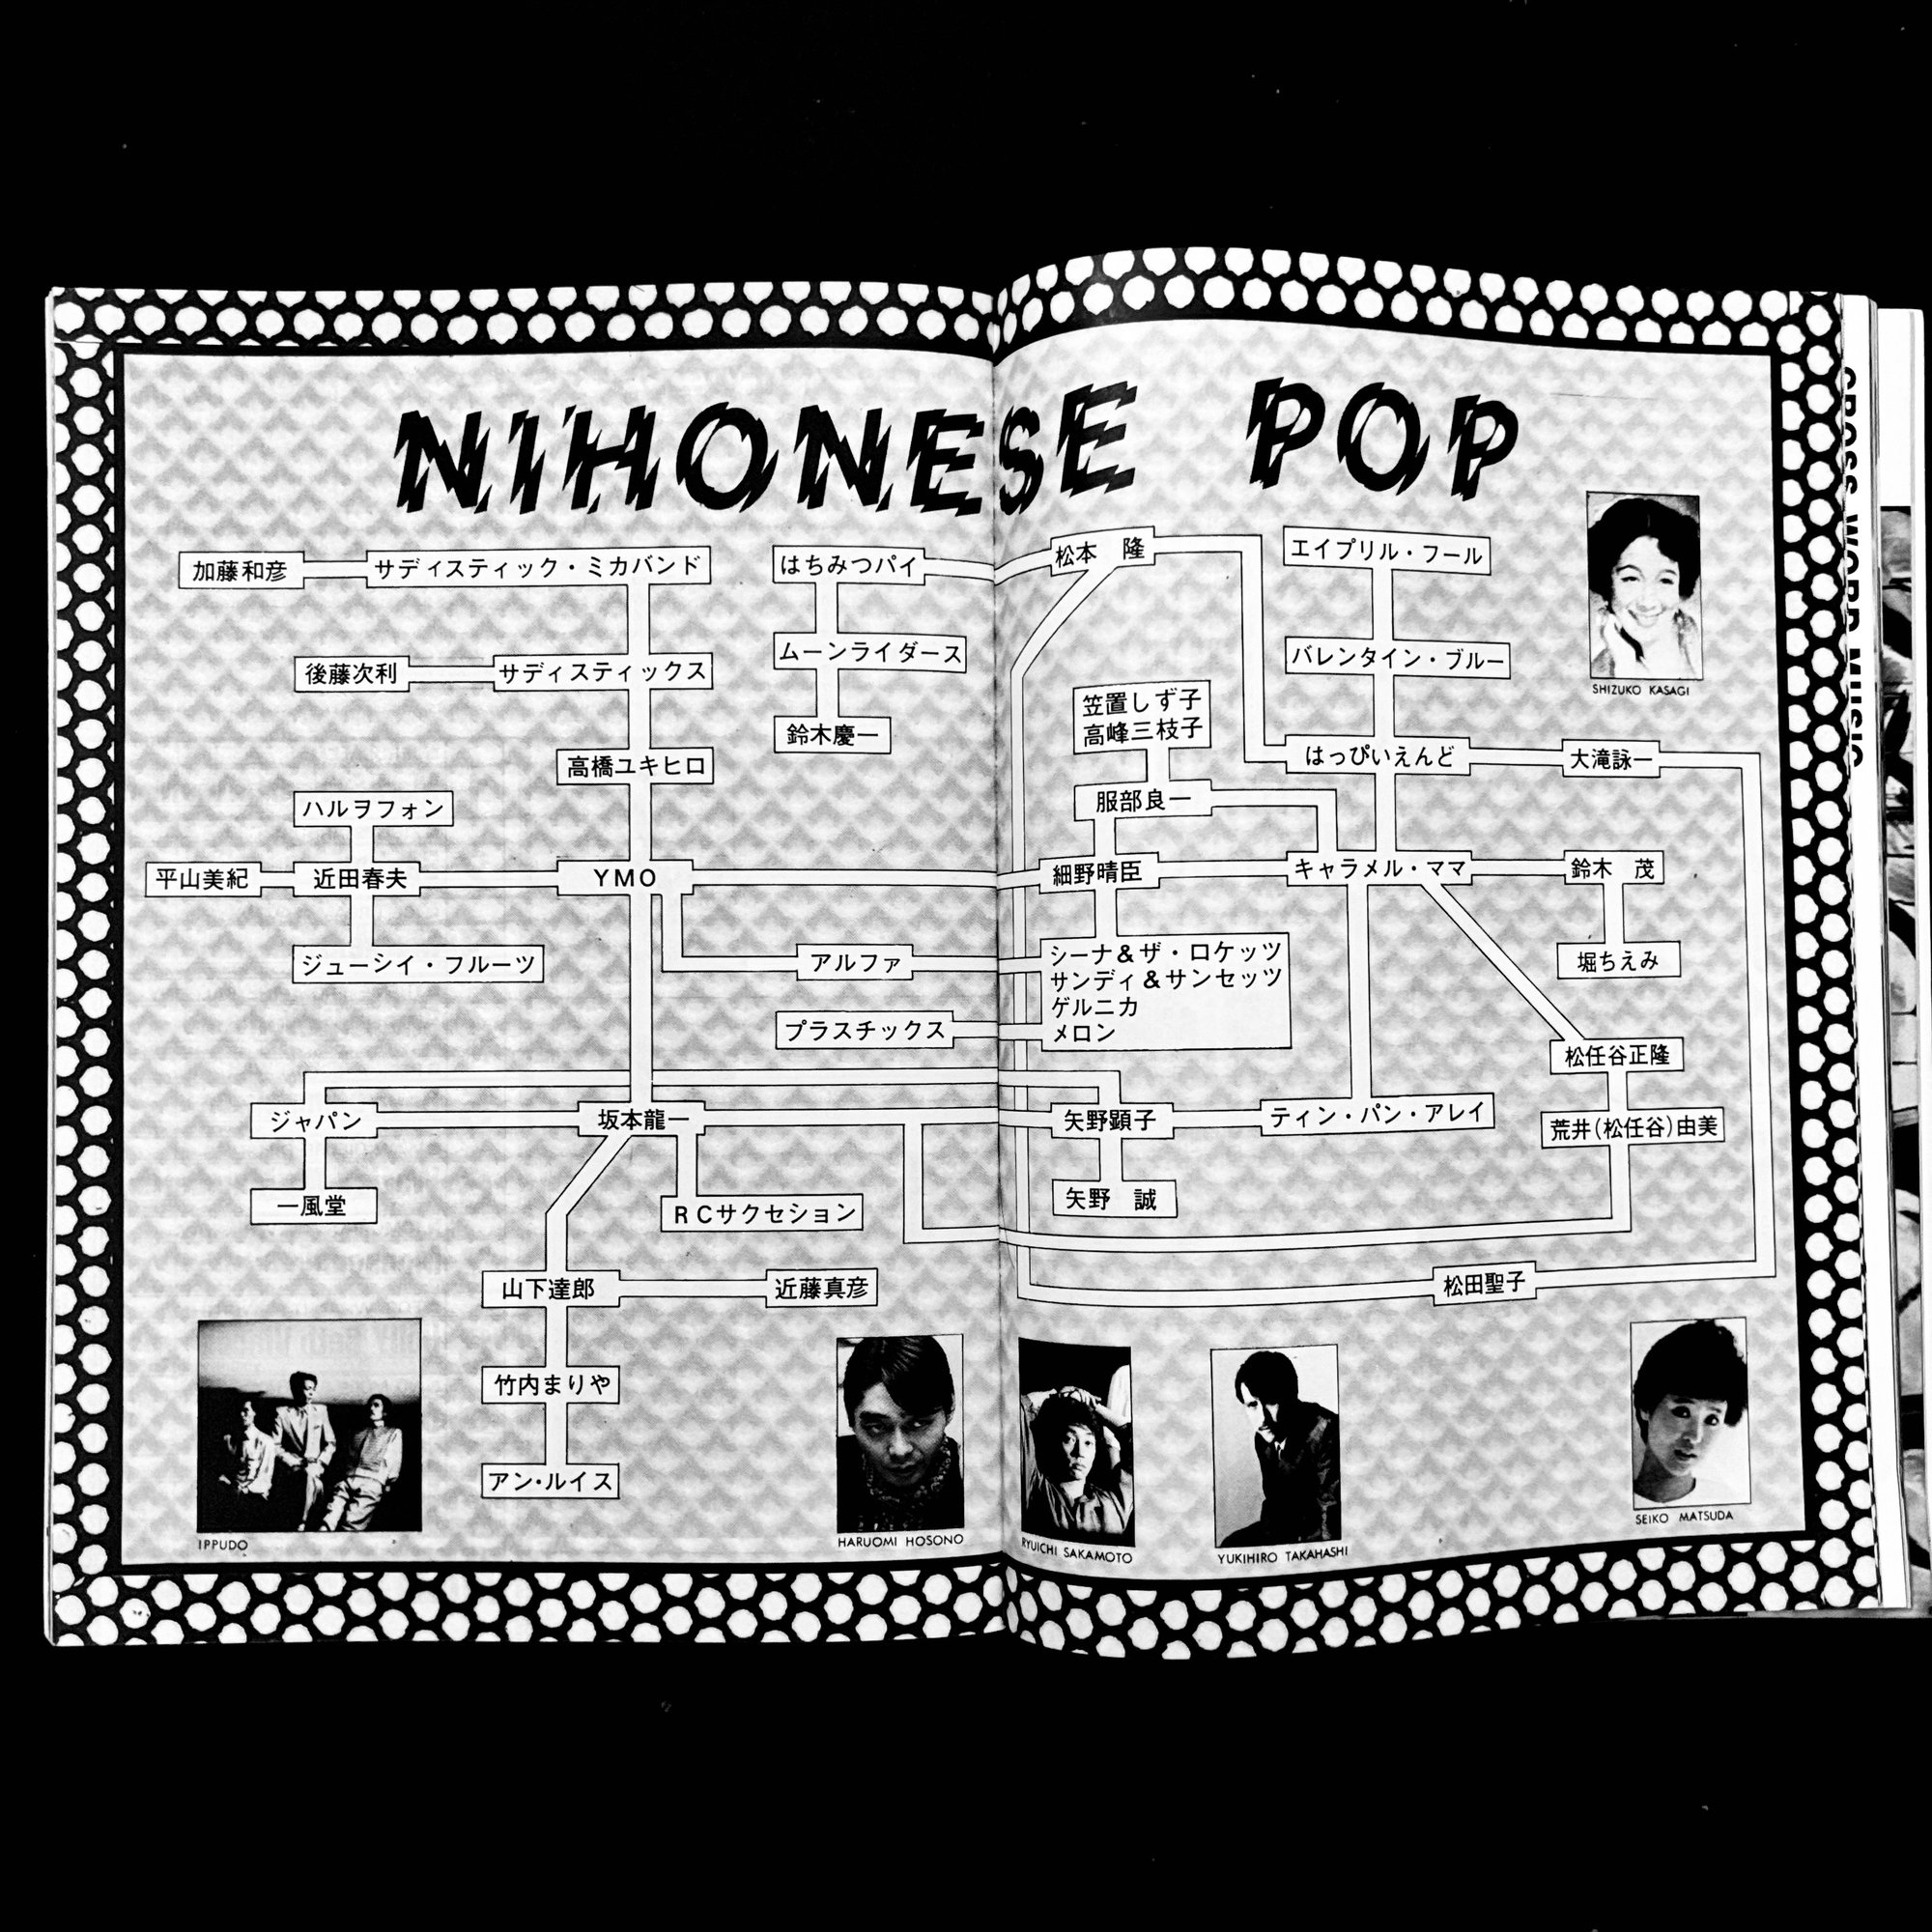 NIHONESE POP
加藤和彦
サディスティック・ミカバンド
はちみつパイ
松本 隆
エイプリル・フール
SHIZUKO KASAGI
後藤次利
サディスティックス
ムーンライダース
バレンタイン・ブルー
鈴木慶一
笠置しず子
高峰三枝子
高橋ユキヒロ
はっぴいえんど
大滝詠一
ハルヲフォン
服部良一
平山美紀
近田春夫
YMO
細野晴臣
キャラメル・ママ
鈴木 茂
ジューシイ・フルーツ
アルファ
シーナ&ザ・ロケッツ
サンディ&サンセッツ
ゲルニカ
メロン
堀ちえみ
プラスチックス
松任谷正隆
ジャパン
坂本龍一
矢野顕子
ティン・パン・アレイ
荒井(松任谷)由美
一風堂
RCサクセション
矢野 誠
山下達郎
近藤真彦
松田聖子
竹内まりや
アン・ルイス
IPPUDO
HARUOMI HOSONO
RYUICHI SAKAMOTO
YUKIHIRO TAKAHASHI
SEIKO MATSUDA
CROSS WORD MUSIC